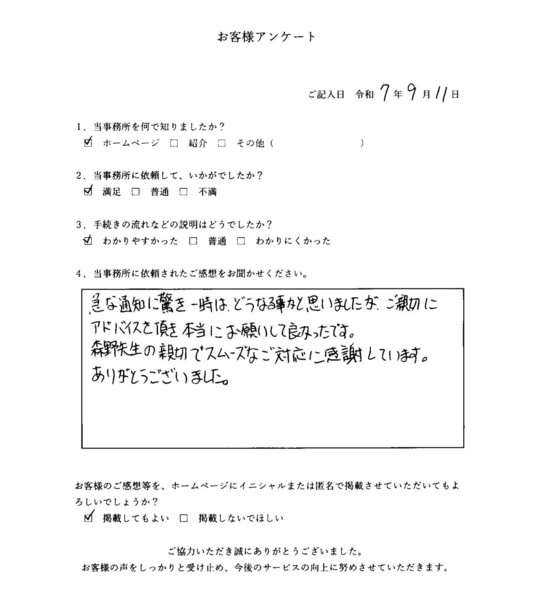 お客様アンケート
ご記入日 令和 7 年 9 月 11 日
1．当事務所を何で知りましたか？
☑ ホームページ □ 紹介 □ その他（ ）
2．当事務所に依頼して、いかがでしたか？
☑ 満足 □ 普通 □ 不満
3．手続きの流れなどの説明はどうでしたか？
☑ わかりやすかった □ 普通 □ わかりにくかった
4．当事務所に依頼されたご感想をお聞かせください。
急な通知に驚き一時は、どうなる事かと思いましたが、ご親切に
アドバイスを頂き本当にお願いして良かったです。
森野先生の親切でスムーズなご対応に感謝しています。
ありがとうございました。
お客様のご感想等を、ホームページにイニシャルまたは匿名で掲載させていただいてもよ
ろしいでしょうか？
☑ 掲載してもよい □ 掲載しないでほしい
ご協力いただき誠にありがとうございました。
お客様の声をしっかりと受け止め、今後のサービスの向上に努めさせていただきます。